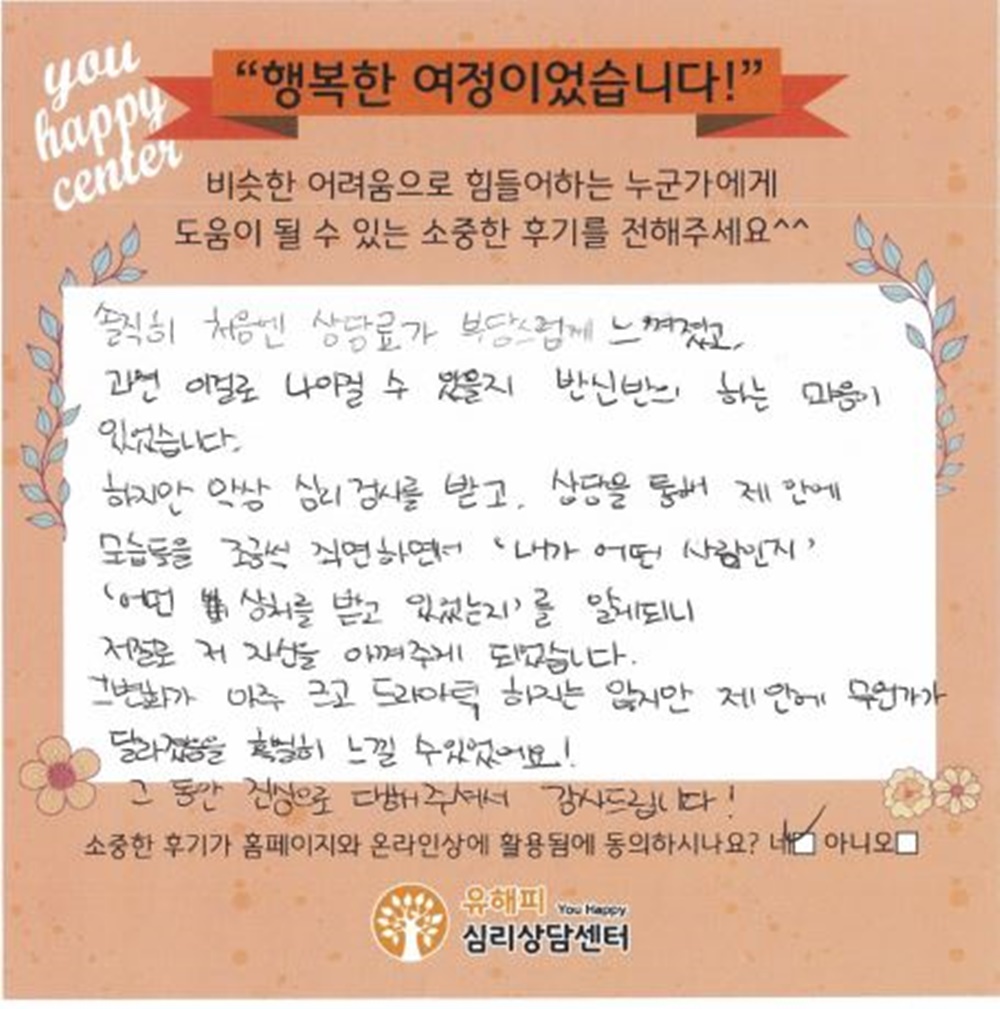 you
happy
center
“행복한 여정이었습니다!”
비슷한 어려움으로 힘들어하는 누군가에게
도움이 될 수 있는 소중한 후기를 전해주세요^^
솔직히 처음엔 상담료가 부담스럽게 느껴졌고,
과연 이걸로 나아질 수 있을지 반신반의 하는 마음이
있었습니다.
하지만 막상 심리검사를 받고, 상담을 통해 제 안에
모습들을 조금씩 직면하면서 '내가 어떤 사람인지'
'어떤 상처를 받고 있었는지'를 알게되니
저절로 저 자신을 아껴주게 되었습니다.
그변화가 아주 크고 드라마틱 하지는 않지만 제 안에 무언가가
달라졌음을 특별히 느낄 수있었어요!
그 동안 진심으로 대해주셔서 감사드립니다!
소중한 후기가 홈페이지와 온라인상에 활용됨에 동의하시나요? 네 아니오
유해피 You Happy
심리상담센터